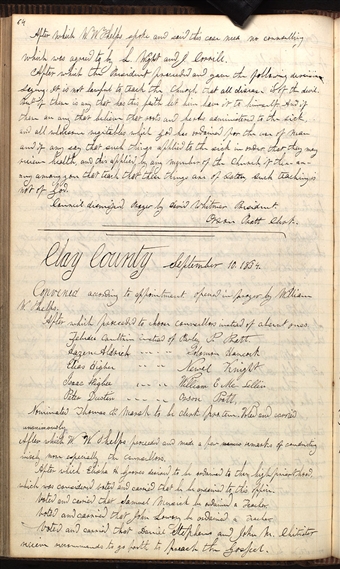 64
After which W W Phelps spoke and said the case need no councilling
which was agreed to by L Wight and J Corrill.
After which the President proceeded and gave the following decision
saying it is not lawful to teach the Church that all disease is of the devil.
But if there is any that has this faith let him have it to himself. And if
there are any that believe that roots and herbs administered to the sick
and all wholesome vegetables which God has ordained for the use of man
and if any say that such things applied to the sick in order that they may
receive health, and this applied by any member of the Church if there are
any among you that teach that these things are of Satan such teaching is
not of God.
Council dismissed Prayer by David Whitmer President
Orson Pratt Clerk.
Clay County September 10. 1834.
Convened according to appointment opened in prayer by William
W. Phelps,
After which proceeded to choose councellors instead of absent ones
Felender Caulkin instead of Parley P Pratt
Hazen Aldrich " " " Solomon Hancock
Elias Higbee " " Newel Knight
Isaac Higbee " " " William E Mc Lellin
Peter Dustin " " " Orson Pratt,
Nominated Thomas B. Marsh to be clerk protem. Voted and carried
unanimously.
After which W. W. Phelps proceeded and made a few remarks of conducting
wisely more especially the councellors.
After which Elisha H. Groves desired to be ordained to the high priesthood
which was considered voted and carried that he be ordained to this office.
Voted and carried that Samuel be ordained a Teacher
Voted and carried that John be ordained a Teacher
Voted and carried that Daniel Stephens and John M.
receive recommends to go forth to preach the Gospel.